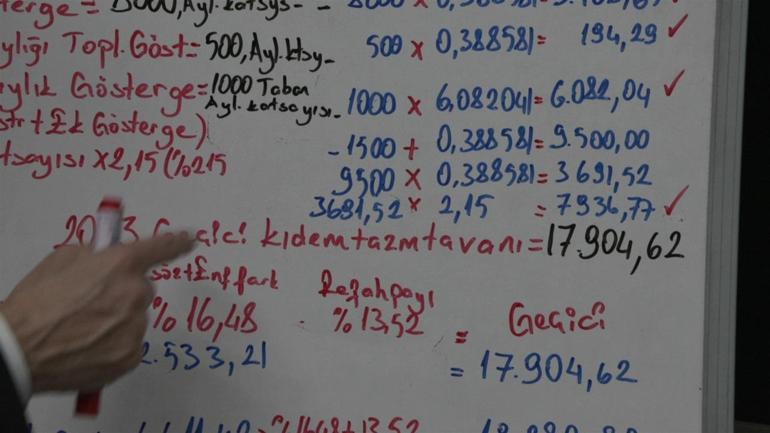 erge= 3000, Ayl. katsys- -
ylığı Topl.Göst=500,Ayl.ktsy- 500 x 0,388581= 194,29 ✓
ylık Gösterge=1000 Taban Ayl.katsayısı- 1000 x 6,082041= 6.082,04 ✓
str+Ek Gösterge) -1500 + 0,388581= 9.500,00
tsayısı x2,15(%215 9500 x 0,388581= 3691,52
3691,52 x 2,15 = 7936,77 ✓
2023 Geçici kıdemtazmtavanı=17.904,62
sözt Enf fark Refahpayı
%16,48 . %13,52 = Geçici
2.533,21 = 17.904,62